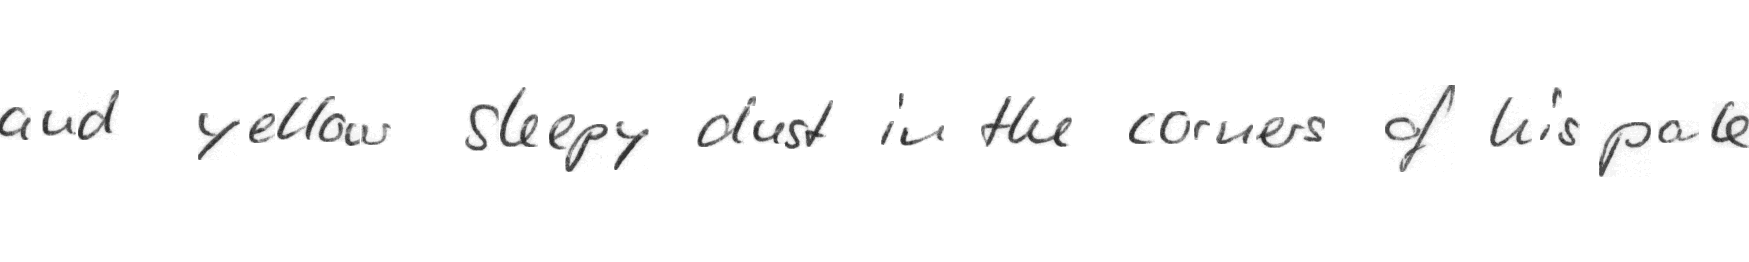 and yellow sleepy dust in the corners of his pale